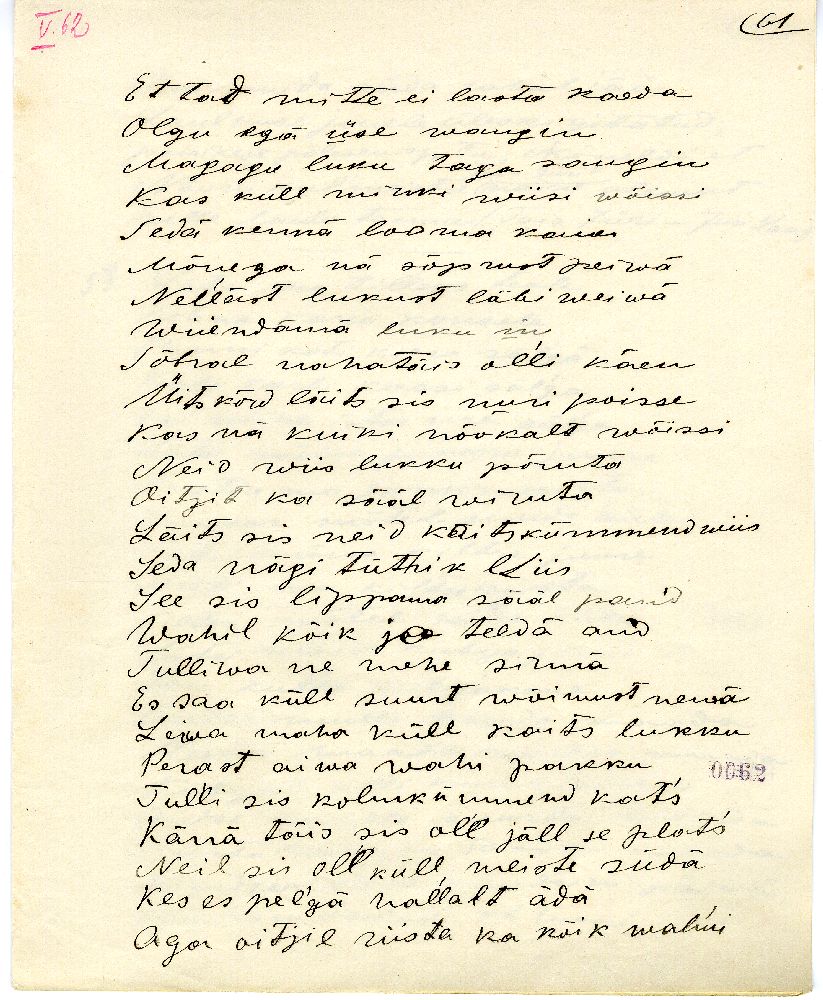 V.62
61
Et tad mitte ei lasta kaeda
Olgu egä üse wangin
Magagu luku taga sangin
Kas küll minki wiisi wõissi
Sedä kennä looma
Mõnega nä sõprust peiwä
Nelläst lukust läbi weiwä
Wiiendämä luku in
Sõbral nahatäis olli käen
Üitskõrd läits sis nuri poisse
Kas nä kuiki nõõkalt wõissi
Neid wiis lukku põruta
Oitjit ka sääl wiruta
Läits sis neid käitskümmend wiis
Seda nägi tüthik Liis
See sis lippama sääl pand
Wahil kõik joo teedä and
Tulliwa ne mehe sinnä
Es saa küll suurt wõimust newä
Leiwa maha küll kaits lukku
Perast aiwa wahi pakku
0062
Tulli sis kolmkümmend kats
Kärrä täis sis oll' jäll se plats
Neil sis oll' küll meiste südä
Kes es pelgä nallalt ädä
Aga oitjil riista ka kõik wahwi